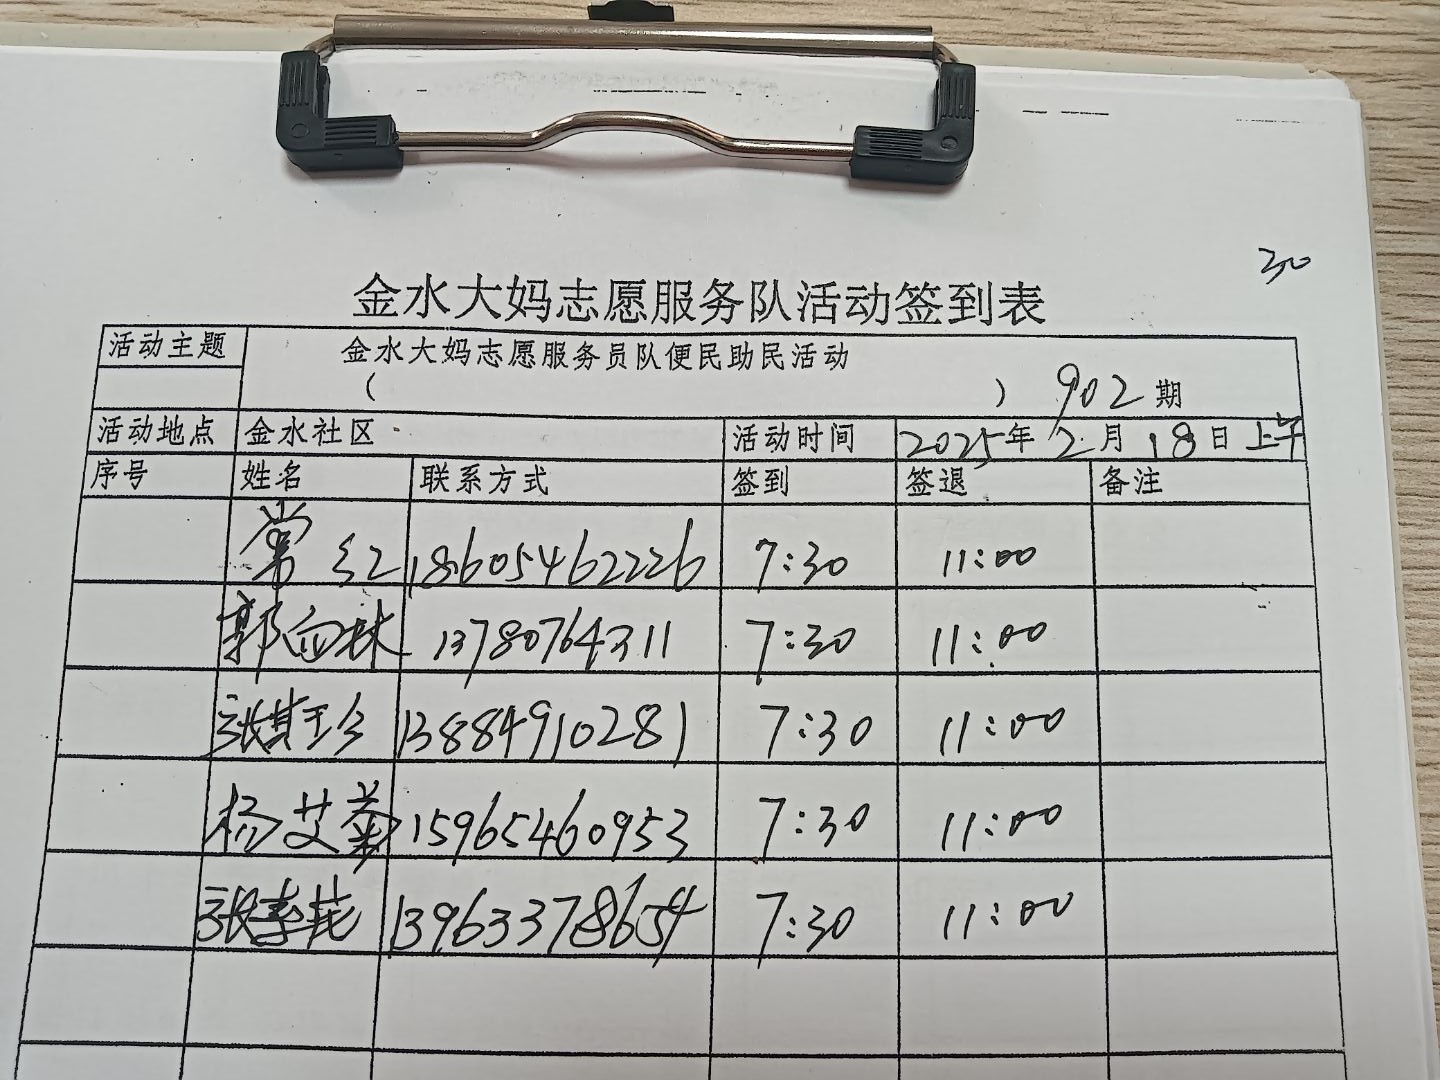 30
金水大妈志愿服务队活动签到表
活动主题 金水大妈志愿服务员队便民助民活动
( ) 902期
活动地点 金水社区 活动时间 2025年2月18日上午
序号 姓名 联系方式 签到 签退 备注
常红 18605462226 7:30 11:00
郭向林 13780764311 7:30 11:00
张其珍 13884910281 7:30 11:00
杨艾菊 15965460953 7:30 11:00
张 13963378654 7:30 11:00